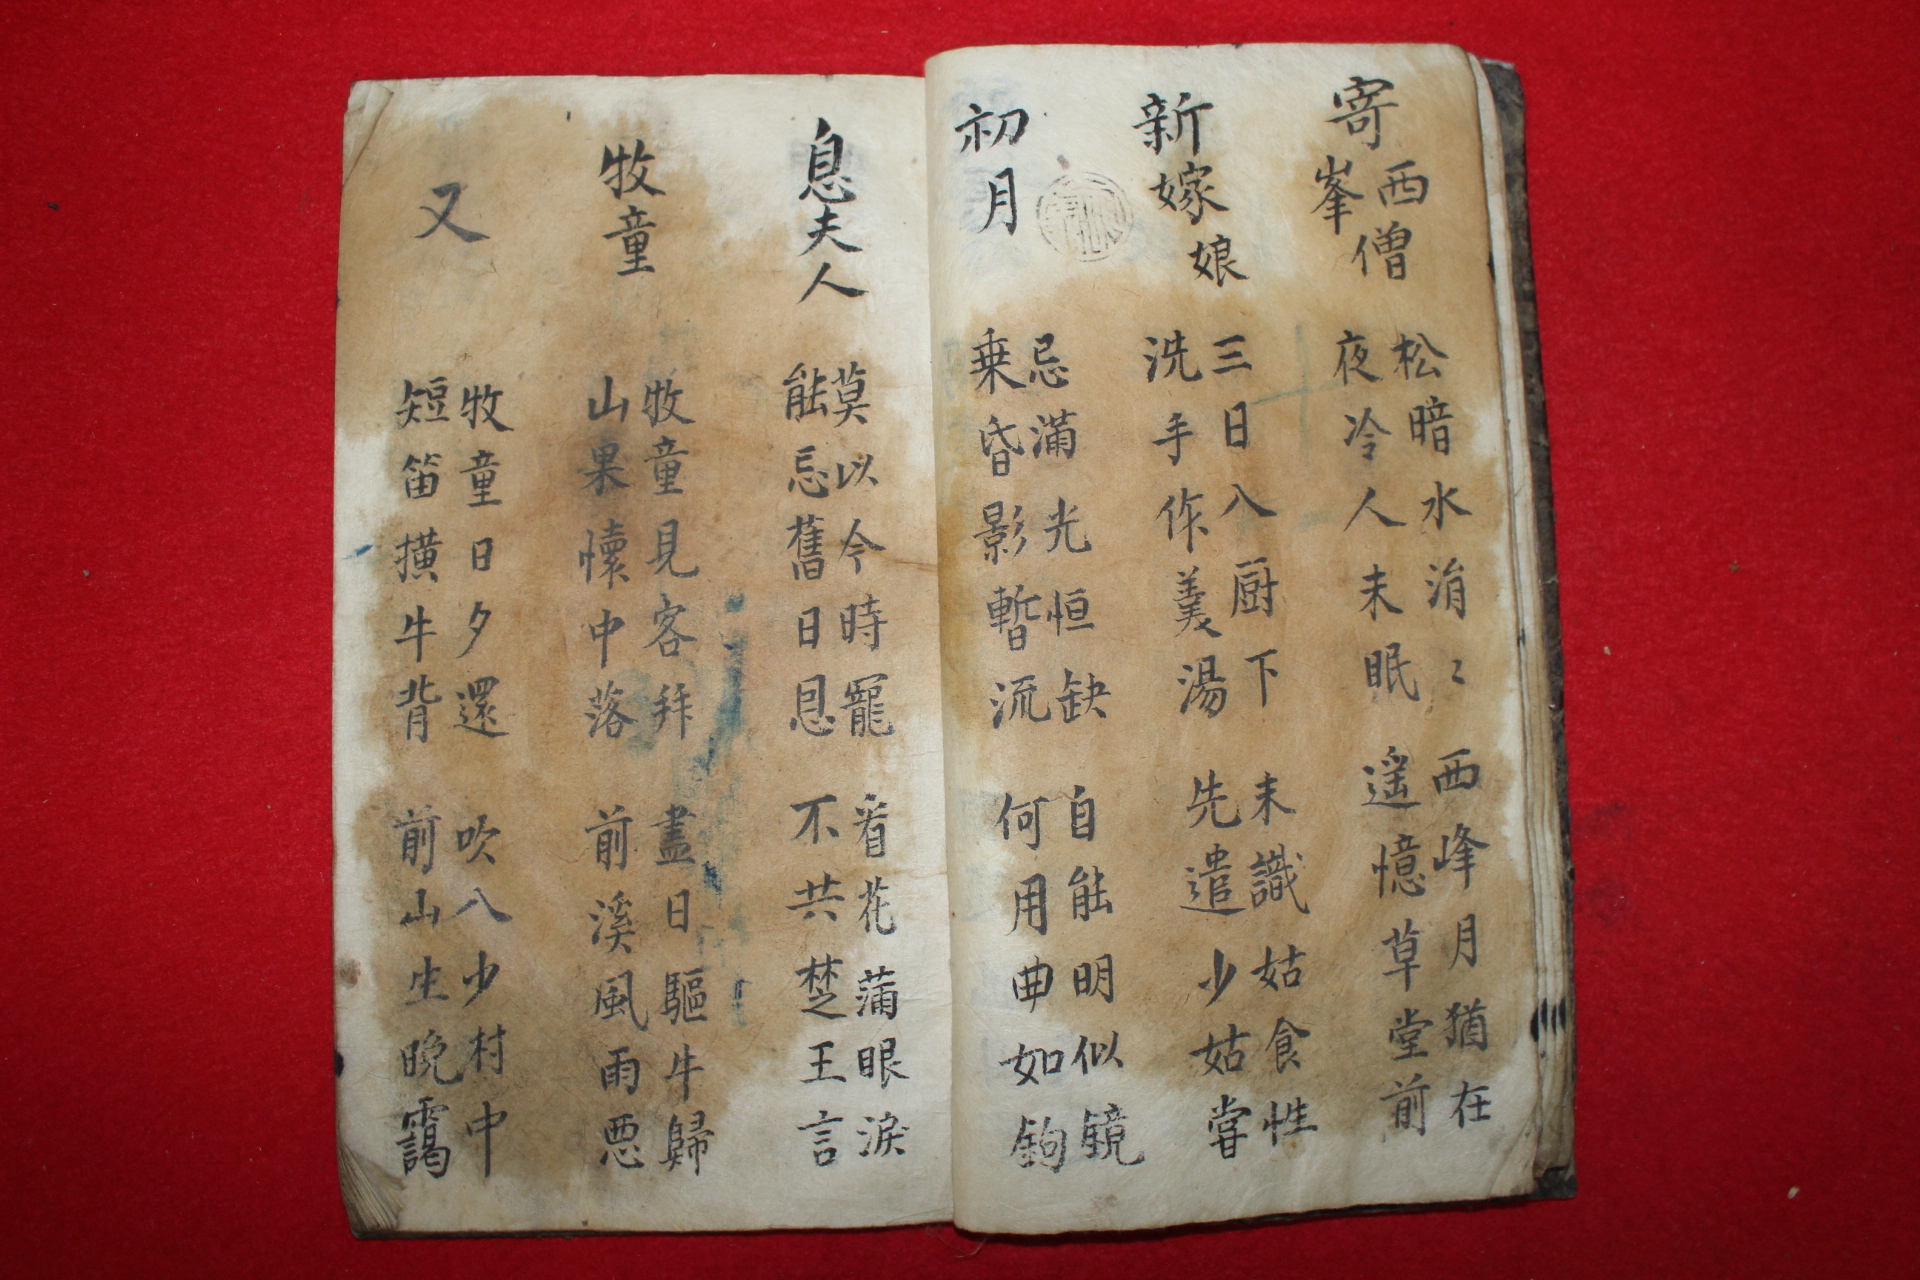 寄西峯僧
松暗水涓〻 西峰月猶在
夜冷人未眠 遥憶草堂前
新嫁娘
三日八厨下 未識姑食性
洗手作羹湯 先遣少姑嘗
初月
忌滿光恒缺 自能明似鏡
乗昏影暫流 何用曲如鉤
息夫人
莫以今時寵 看花蒲眼淚
能忌舊日恩 不共楚王言
牧童
牧童見客拜 盡日驅牛歸
山果懷中落 前溪風雨悪
又
牧童日夕還 吹八少村中
短笛横牛背 前山生晩靄